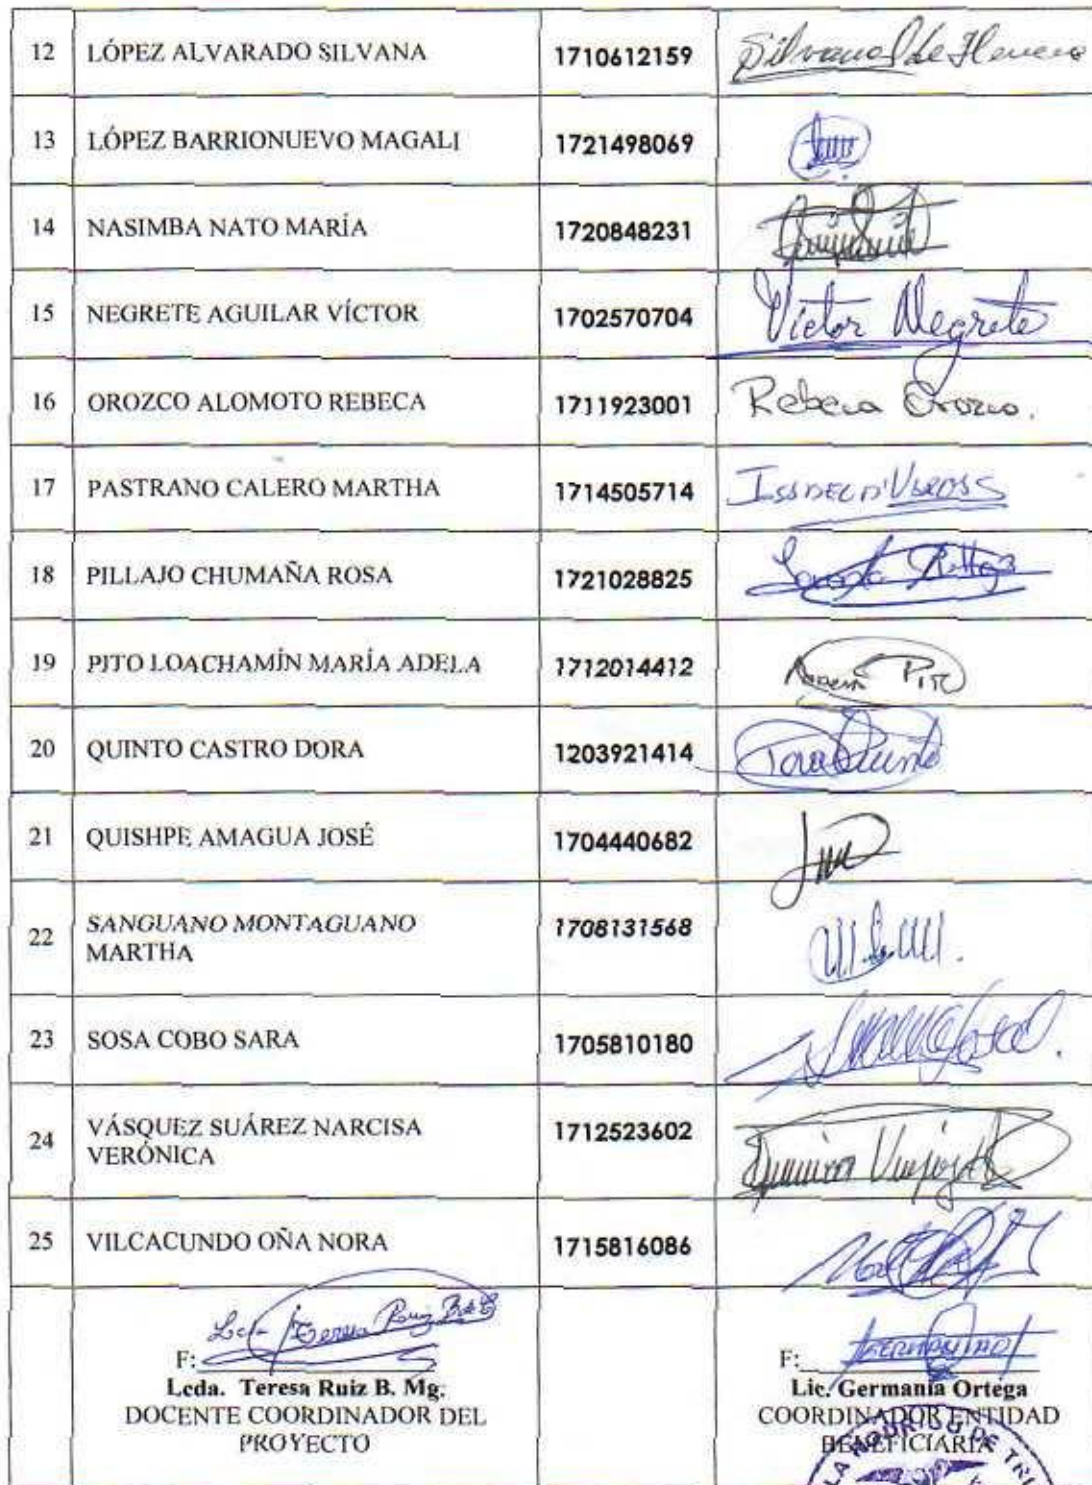 12 LÓPEZ ALVARADO SILVANA 1710612159 Silvana de
13 LÓPEZ BARRIONUEVO MAGALI 1721498069
14 NASIMBA NATO MARÍA 1720848231
15 NEGRETE AGUILAR VÍCTOR 1702570704 Víctor Negrete
16 OROZCO ALOMOTO REBECA 1711923001 Rebeca Orozco.
17 PASTRANO CALERO MARTHA 1714505714
18 PILLAJO CHUMAÑA ROSA 1721028825
19 PITO LOACHAMÍN MARÍA ADELA 1712014412 PITO
20 QUINTO CASTRO DORA 1203921414
21 QUISHPE AMAGUA JOSÉ 1704440682
22 SANGUANO MONTAGUANO 1708131568
MARTHA
23 SOSA COBO SARA 1705810180
24 VÁSQUEZ SUÁREZ NARCISA 1712523602
VERÓNICA
25 VILCACUNDO OÑA NORA 1715816086
Lcda Teresa Ruiz
F: F:
Lcda. Teresa Ruiz B. Mg. Lic. Germania Ortega
DOCENTE COORDINADOR DEL COORDINADOR ENTIDAD
PROYECTO BENEFICIARIA